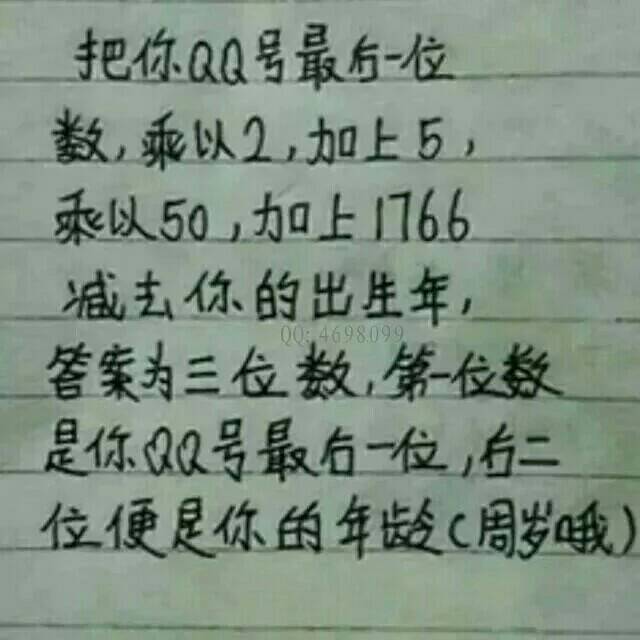 把你QQ号最后一位
数,乘以2,加上5,
乘以50,加上1766
减去你的出生年,
QQ:4698099
答案为三位数,第一位数
是你QQ号最后一位,后二
位便是你的年龄(周岁哦)